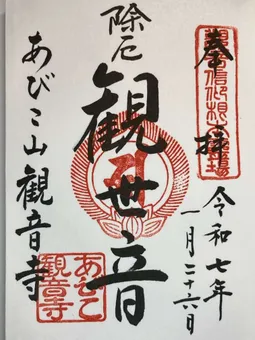 奉拝
令和七年
一月二十六日
除厄
観世音
あびこ山観音寺
あびこ
観音寺